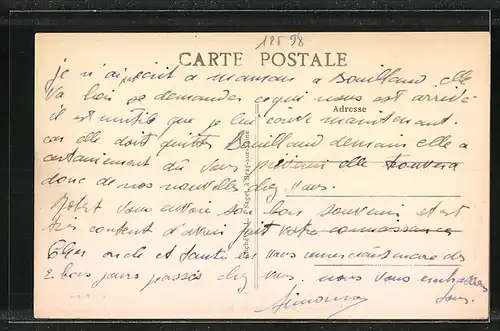 12598
CARTE POSTALE
je n'ai pas écrit à maman à Bouilland elle
Adresse
va bien se demander ce qui nous est arrivé
il est inutile que je lui écrive maintenant.
car elle doit quitter Bouilland demain elle a
certainement dû vous prévenir elle trouvera
donc de nos nouvelles chez vous.
vous envoie son bon souvenir et est
très content d'avoir fait votre connaissance
Cher oncle et tante en vous remerciant encore des
2 bons jours passés chez vous. nous vous embrassons
tous.
Simonne